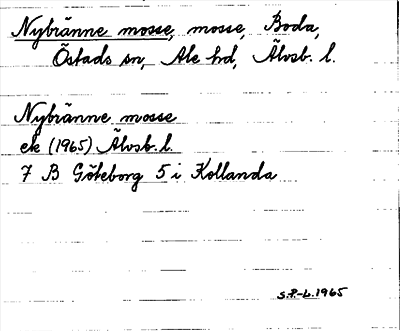 Nybränne mosse, mosse, Boda,
Östads sn, Ale hd, Älvsb. l.
Nybränne mosse
ek (1965) Älvsb. l.
7 B Göteborg 5 i Kollanda
S.P.-L. 1965